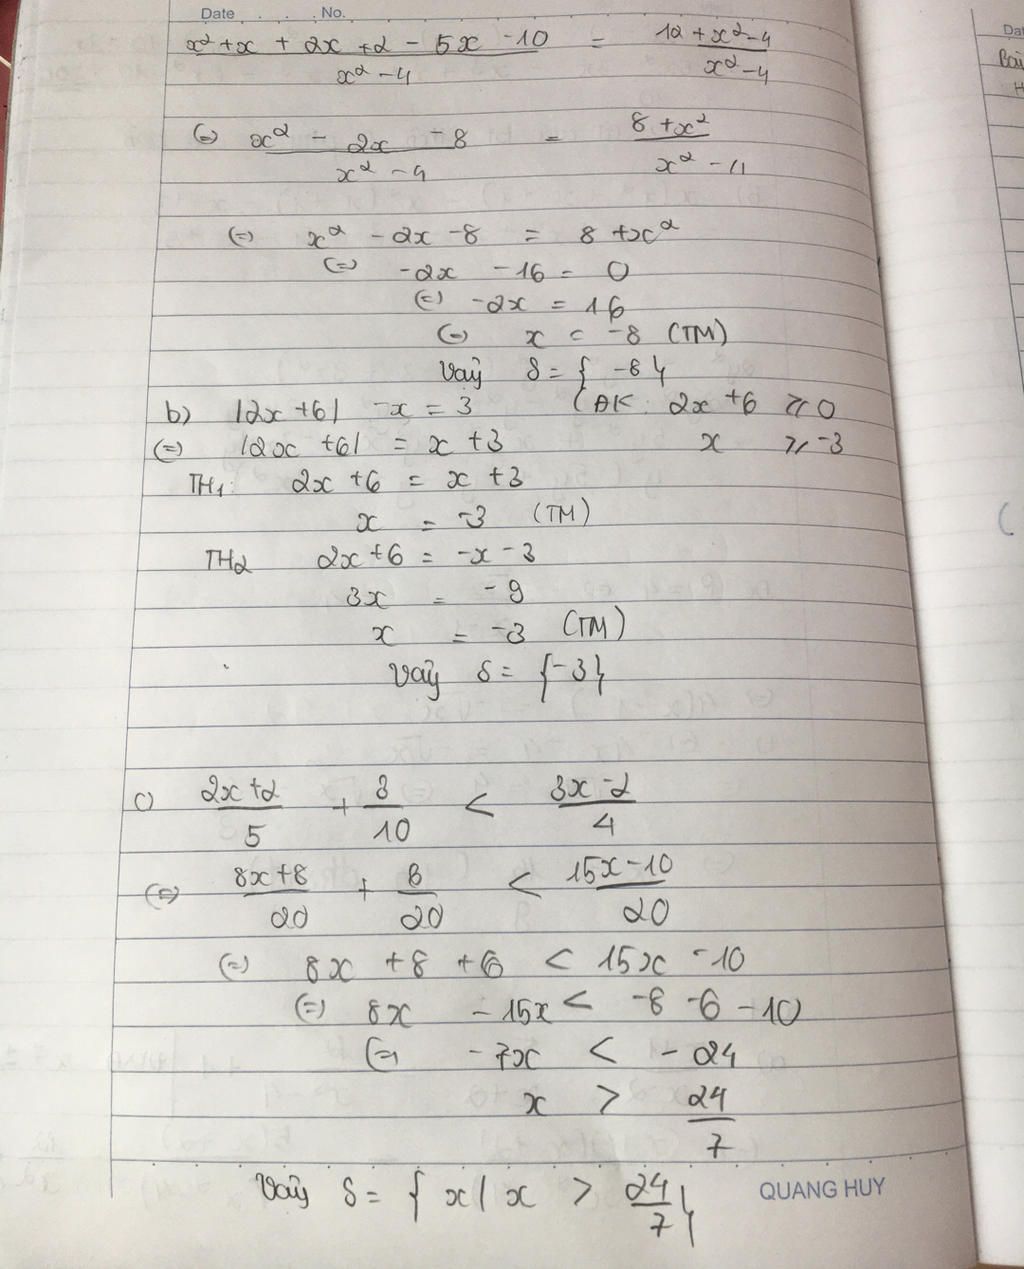 Date . . . No.
x² + x + 2x + 2 - 5x - 10 / x² - 4 = 12 + x² - 4 / x² - 4
(=) x² - 2x - 8 / x² - 4 = 8 + x² / x² - 4
(=) x² - 2x - 8 = 8 + x²
(=) -2x - 16 = 0
(=) -2x = 16
(=) x = -8 (TM)
Vậy S = { -8 }
b) |2x + 6| - x = 3 (ĐK: 2x + 6 ≥ 0
(=) |2x + 6| = x + 3 x ≥ -3
TH1: 2x + 6 = x + 3
x = -3 (TM)
TH2 2x + 6 = -x - 3
3x = -9
x = -3 (TM)
Vậy S = {-3}
c) 2x + 2 / 5 + 3 / 10 < 3x - 2 / 4
(=) 8x + 8 / 20 + 6 / 20 < 15x - 10 / 20
(=) 8x + 8 + 6 < 15x - 10
(=) 8x - 15x < -8 - 6 - 10
(=) -7x < -24
x > 24 / 7
Vậy S = { x | x > 24 / 7 }
QUANG HUY
Bài